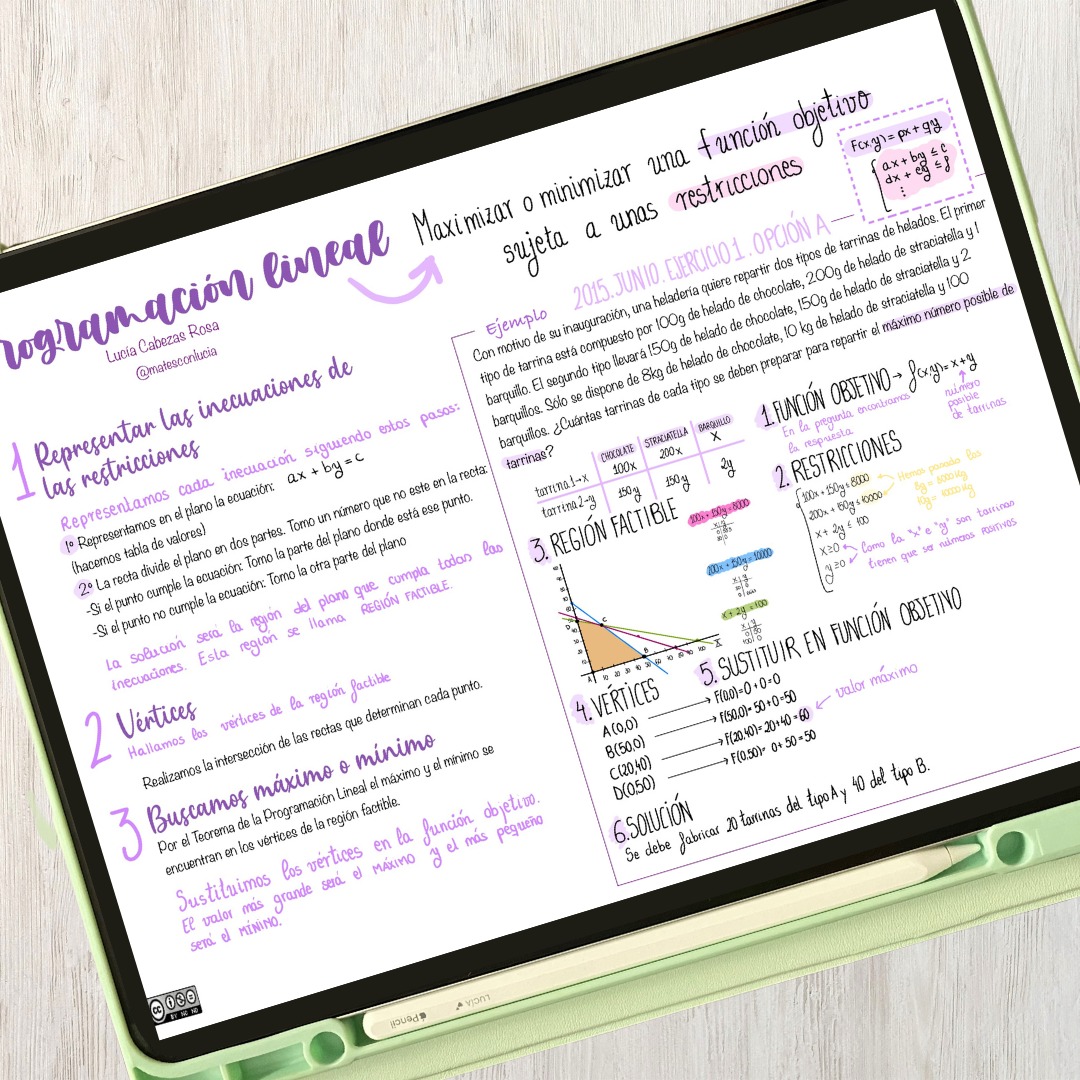 rogramación lineal
Lucía Cabezas Rosa
@matesconlucia
Maximizar o minimizar una función objetivo
sujeta a unas restricciones
F(x,y) = px + qy
ax + by ≤ c
dx + ey ≤ f
⋮
1 Representar las inecuaciones de
las restricciones
Representamos cada inecuación siguiendo estos pasos:
1º Representamos en el plano la ecuación: ax + by = c
(hacemos tabla de valores)
2º La recta divide el plano en dos partes. Tomo un número que no este en la recta:
-Si el punto cumple la ecuación: Tomo la parte del plano donde está ese punto.
-Si el punto no cumple la ecuación: Tomo la otra parte del plano
La solución será la región del plano que cumpla todas las
inecuaciones. Esta región se llama REGIÓN FACTIBLE.
2 Vértices
Hallamos los vértices de la región factible
Realizamos la intersección de las rectas que determinan cada punto.
3 Buscamos máximo o mínimo
Por el Teorema de la Programación Lineal el máximo y el mínimo se
encuentran en los vértices de la región factible.
Sustituimos los vértices en la función objetivo.
El valor más grande será el MÁXIMO y el más pequeño
será el MÍNINO.
Ejemplo 2015. JUNIO. EJERCICIO 1. OPCIÓN A
Con motivo de su inauguración, una heladería quiere repartir dos tipos de tarrinas de helados. El primer
tipo de tarrina está compuesto por 100g de helado de chocolate, 200g de helado de straciatella y 1
barquillo. El segundo tipo llevará 150g de helado de chocolate, 150g de helado de straciatella y 2
barquillos. Sólo se dispone de 8kg de helado de chocolate, 10 kg de helado de straciatella y 100
barquillos. ¿Cuántas tarrinas de cada tipo se deben preparar para repartir el máximo número posible de
tarrinas?
CHOCOLATE STRACIATELLA BARQUILLO
tarrina 1→x 100x 200x X
tarrina 2→y 150y 150y 2y
1. FUNCIÓN OBJETIVO → f(x,y) = x+y
En la pregunta encontramos
la respuesta
número
posible
de tarrinas
2. RESTRICCIONES
100x + 150y ≤ 8000
200x + 150y ≤ 10000
x + 2y ≤ 100
x ≥ 0
y ≥ 0
Hemos pasado los
Como la "x" e "y" son tarrinas
tienen que ser números positivos
3. REGIÓN FACTIBLE
100x + 150y = 8000
200x + 150y = 10000
x + 2y = 100
A
B
C
D
4. VÉRTICES
A(0,0)
B(50,0)
C(20,40)
D(0,50)
5. SUSTITUIR EN FUNCIÓN OBJETIVO
F(0,0)= 0 + 0 = 0
F(50,0)= 50 + 0 = 50
F(20,40)= 20+40 = 60
F(0,50)= 0 + 50 = 50
valor máximo
6. SOLUCIÓN
Se debe fabricar 20 tarrinas del tipo A y 40 del tipo B.
cc BY NC ND
Pencil LUCÍA